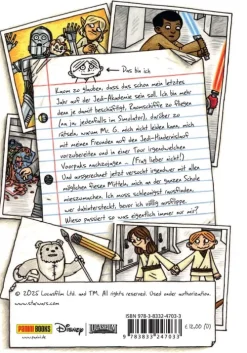 ← Das bin ich
Kaum zu glauben, dass das schon mein letztes
Jahr auf der Jedi-Akademie sein soll. Ich bin mehr
denn je damit beschäftigt, Raumschiffe zu fliegen
(na ja, jedenfalls im Simulator), darüber zu
rätseln, warum Mr. G. mich nicht leiden kann, mich
mit meinen Freunden auf den Jedi-Hindernislauf
vorzubereiten und in einer Tour irgendwelchen
Voorpaks nachzujagen – (frag lieber nicht!)
Und ausgerechnet jetzt versucht irgendwer mit allen
möglichen fiesen Mitteln, mich an der ganzen Schule
mieszumachen. Ich muss schleunigst rausfinden,
wer dahintersteckt, bevor ich völlig ausflippe.
Wieso passiert so was eigentlich immer nur mir?
© 2025 Lucasfilm Ltd. and TM. All rights reserved. Used under authorization.
www.starwars.com
PANINI BOOKS
www.panini.de
Disney
LUCASFILM
ISBN 978-3-8332-4703-3
€ 12,00 (D)
9 783833 247033